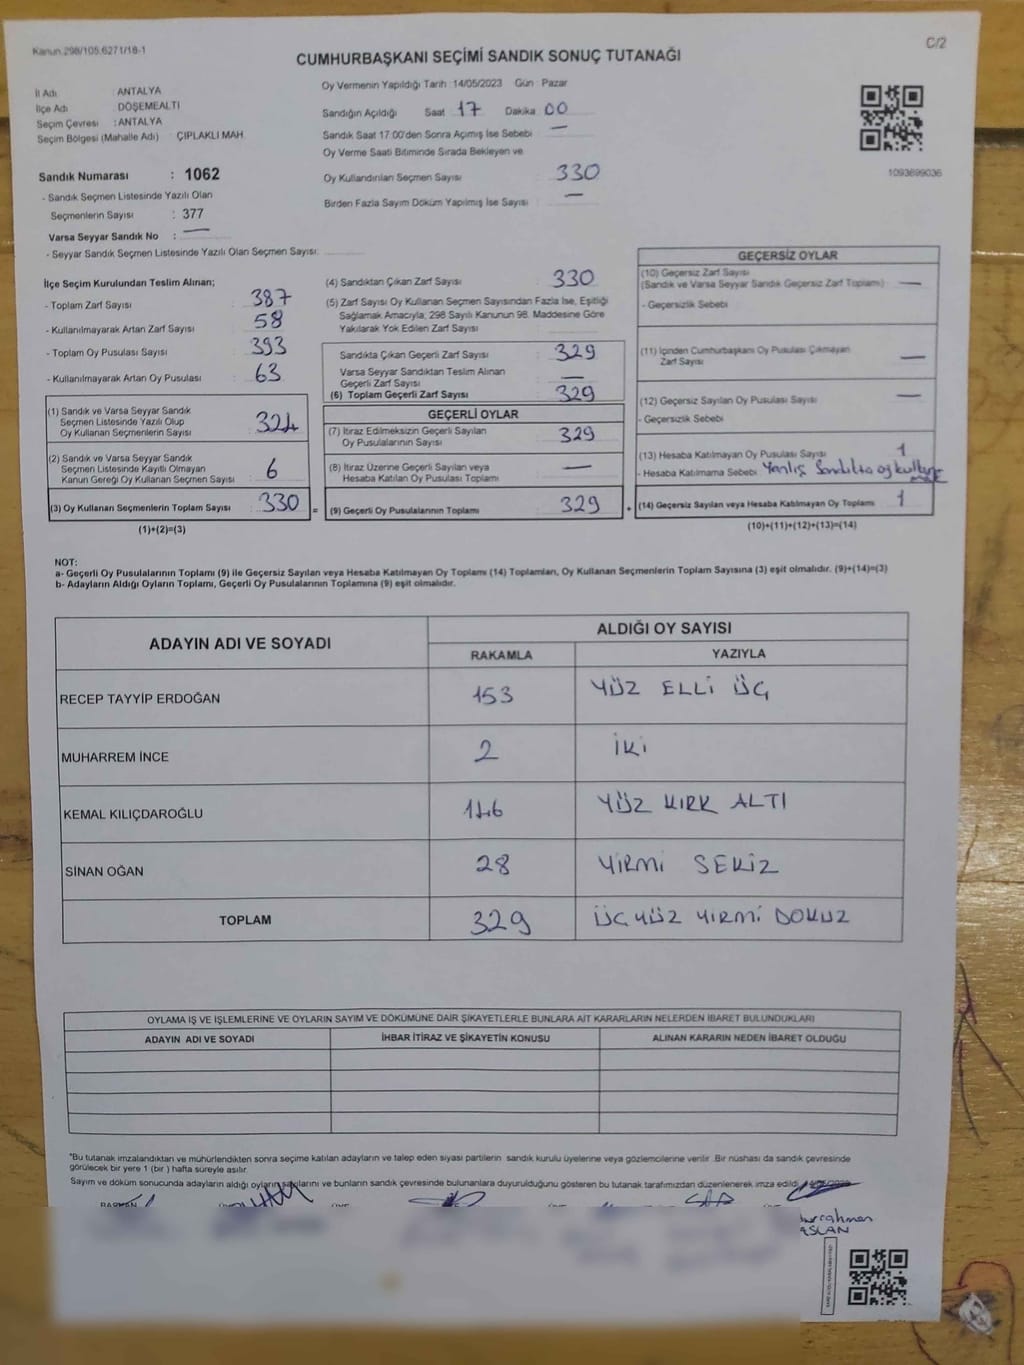 Kanun.298/105.6271/18-1
C/2
CUMHURBAŞKANI SEÇİMİ SANDIK SONUÇ TUTANAĞI
İl Adı : ANTALYA
İlçe Adı : DÖŞEMEALTI
Seçim Çevresi : ANTALYA
Seçim Bölgesi (Mahalle Adı) : ÇIPLAKLI MAH.
Sandık Numarası : 1062
- Sandık Seçmen Listesinde Yazılı Olan
Seçmenlerin Sayısı : 377
Varsa Seyyar Sandık No : —
- Seyyar Sandık Seçmen Listesinde Yazılı Olan Seçmen Sayısı:
Oy Vermenin Yapıldığı Tarih : 14/05/2023 Gün : Pazar
Sandığın Açıldığı Saat 17 Dakika 00
Sandık Saat 17:00'den Sonra Açımış İse Sebebi : —
Oy Verme Saati Bitiminde Sırada Bekleyen ve
Oy Kullandırılan Seçmen Sayısı : 330
Birden Fazla Sayım Döküm Yapılmış İse Sayısı : —
1093699036
İlçe Seçim Kurulundan Teslim Alınan;
- Toplam Zarf Sayısı : 387
- Kullanılmayarak Artan Zarf Sayısı : 58
- Toplam Oy Pusulası Sayısı : 393
- Kullanılmayarak Artan Oy Pusulası : 63
(1) Sandık ve Varsa Seyyar Sandık
Seçmen Listesinde Yazılı Olup
Oy Kullanan Seçmenlerin Sayısı : 324
(2) Sandık ve Varsa Seyyar Sandık
Seçmen Listesinde Kayıtlı Olmayan
Kanun Gereği Oy Kullanan Seçmen Sayısı : 6
(3) Oy Kullanan Seçmenlerin Toplam Sayısı : 330 =
(1)+(2)=(3)
(4) Sandıktan Çıkan Zarf Sayısı : 330
(5) Zarf Sayısı Oy Kullanan Seçmen Sayısından Fazla İse, Eşitliği
Sağlamak Amacıyla, 298 Sayılı Kanunun 98. Maddesine Göre
Yakılarak Yok Edilen Zarf Sayısı :
Sandıkta Çıkan Geçerli Zarf Sayısı : 329
Varsa Seyyar Sandıktan Teslim Alınan
Geçerli Zarf Sayısı : —
(6) Toplam Geçerli Zarf Sayısı : 329
GEÇERLİ OYLAR
(7) İtiraz Edilmeksizin Geçerli Sayılan
Oy Pusulalarının Sayısı : 329
(8) İtiraz Üzerine Geçerli Sayılan veya
Hesaba Katılan Oy Pusulası Toplamı : —
(9) Geçerli Oy Pusulalarının Toplamı : 329 +
GEÇERSİZ OYLAR
(10) Geçersiz Zarf Sayısı
(Sandık ve Varsa Seyyar Sandık Geçersiz Zarf Toplamı) : —
- Geçersizlik Sebebi
(11) İçinden Cumhurbaşkanı Oy Pusulası Çıkmayan
Zarf Sayısı : —
(12) Geçersiz Sayılan Oy Pusulası Sayısı : —
- Geçersizlik Sebebi
(13) Hesaba Katılmayan Oy Pusulası Sayısı : 1
- Hesaba Katılmama Sebebi Yanlış Sandıkta oy kullan
(14) Geçersiz Sayılan veya Hesaba Katılmayan Oy Toplamı : 1
(10)+(11)+(12)+(13)=(14)
NOT:
a- Geçerli Oy Pusulalarının Toplamı (9) ile Geçersiz Sayılan veya Hesaba Katılmayan Oy Toplamı (14) Toplamları, Oy Kullanan Seçmenlerin Toplam Sayısına (3) eşit olmalıdır. (9)+(14)=(3)
b- Adayların Aldığı Oyların Toplamı, Geçerli Oy Pusulalarının Toplamına (9) eşit olmalıdır.
ADAYIN ADI VE SOYADI ALDIĞI OY SAYISI
RAKAMLA YAZIYLA
RECEP TAYYİP ERDOĞAN 153 YÜZ ELLİ ÜÇ
MUHARREM İNCE 2 İKİ
KEMAL KILIÇDAROĞLU 146 YÜZ KIRK ALTI
SİNAN OĞAN 28 YİRMİ SEKİZ
TOPLAM 329 ÜÇ YÜZ YİRMİ DOKUZ
OYLAMA İŞ VE İŞLEMLERİNE VE OYLARIN SAYIM VE DÖKÜMÜNE DAİR ŞİKAYETLERLE BUNLARA AİT KARARLARIN NELERDEN İBARET BULUNDUKLARI
ADAYIN ADI VE SOYADI İHBAR İTİRAZ VE ŞİKAYETİN KONUSU ALINAN KARARIN NEDEN İBARET OLDUĞU
"Bu tutanak imzalandıktan ve mühürlendikten sonra seçime katılan adayların ve talep eden siyasi partilerin sandık kurulu üyelerine veya gözlemcilerine verilir .Bir nüshası da sandık çevresinde
görülecek bir yere 1 (bir ) hafta süreyle asılır.
Sayım ve döküm sonucunda adayların aldığı oyların sayılarını ve bunların sandık çevresinde bulunanlara duyurulduğunu gösteren bu tutanak tarafımızdan düzenlenerek imza edildi.
BAŞKAN
ASLAN